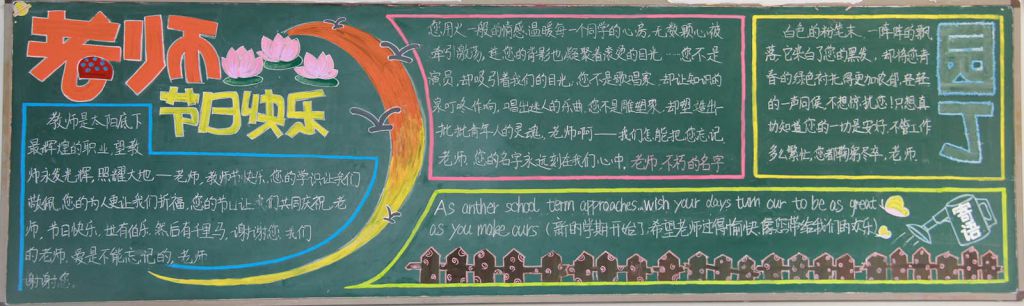 老师
节日快乐
教师是太阳底下
最辉煌的职业,望教
师永发光辉,照耀大地——老师,教师节快乐,您的学识让我们
敬佩,您的为人更让我们折福,您的节日让我们共同庆祝,老
师,节日快乐,世有伯乐,然后有千里马,谢谢您,我们
的老师,爱是不能忘记的,老师
谢谢您。
您用火一般的情感温暖每一个同学的心房,无数颗心被
牵引激荡,连您的背影也凝聚着滚烫的目光……您不是
演员,却吸引着我们的目光,您不是歌唱家,却让知识的
泉叮咚作响,唱出迷人的乐曲,您不是雕塑家,却塑造出一
批批青年人的灵魂,老师啊——我们怎能把您忘记
老师,您的名字永远刻在我们心中,老师不朽的名字
白色的粉笔末,一阵阵的飘
落,它染白了您的黑发,却将您青
春的绿色衬托得更加浓郁,轻轻
的一声问候,不想惊扰您!只想真
切知道您的一切是安好,不管工作
多么繁忙,您都鞠躬尽卒,老师
园丁
As anther school term approaches...wish your days turn our to be as great
as you make ours (新的学期开始了,希望老师过得愉快,像您带给我们的欢乐)
寄语